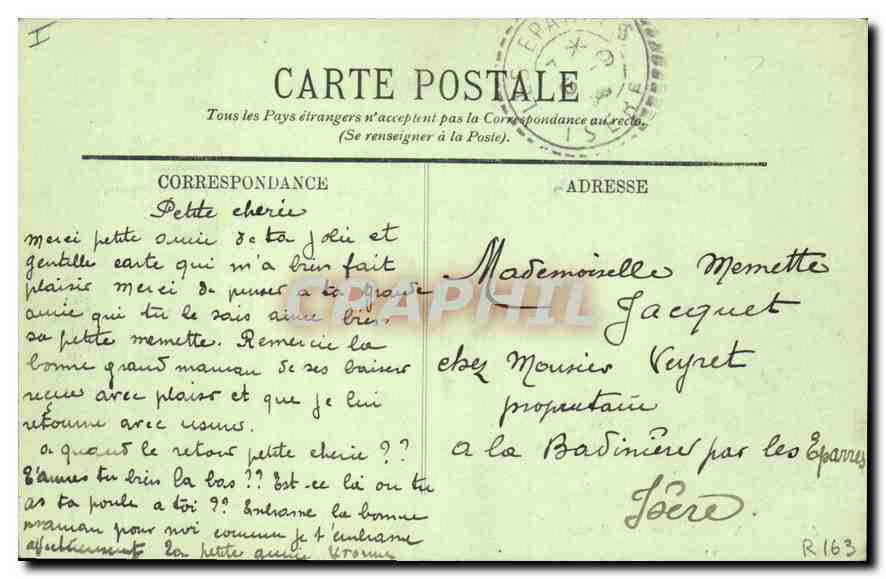 I
LES EPARRES
ISERE
CARTE POSTALE
Tous les Pays étrangers n'acceptent pas la Correspondance au recto.
(Se renseigner à la Poste).
CORRESPONDANCE
Petite cherie
merci petite amie de ta jolie et
gentille carte qui m'a bien fait
plaisir merci de penser a ta grande
amie qui tu le sais aime bien
sa petite memette. Remercie la
bonne grand maman de ses baisers
reçue avec plaisir et que je lui
retourne avec usure.
a quand le retour petite cherie ??
T'amuses tu bien la bas ?? Est-ce là ou tu
as ta poule a toi ?? Embrasse la bonne
maman pour moi comme je t'embrasse
affectueusement Ta petite amie Yvonne
ADRESSE
Mademoiselle Memette
Jacquet
chez Monsier Veyret
propriétaire
a la Badinière par les Eparres
Isère.
CARAPHIL
R 163